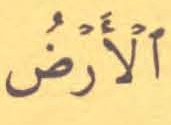 ٱلۡأَرۡضُ